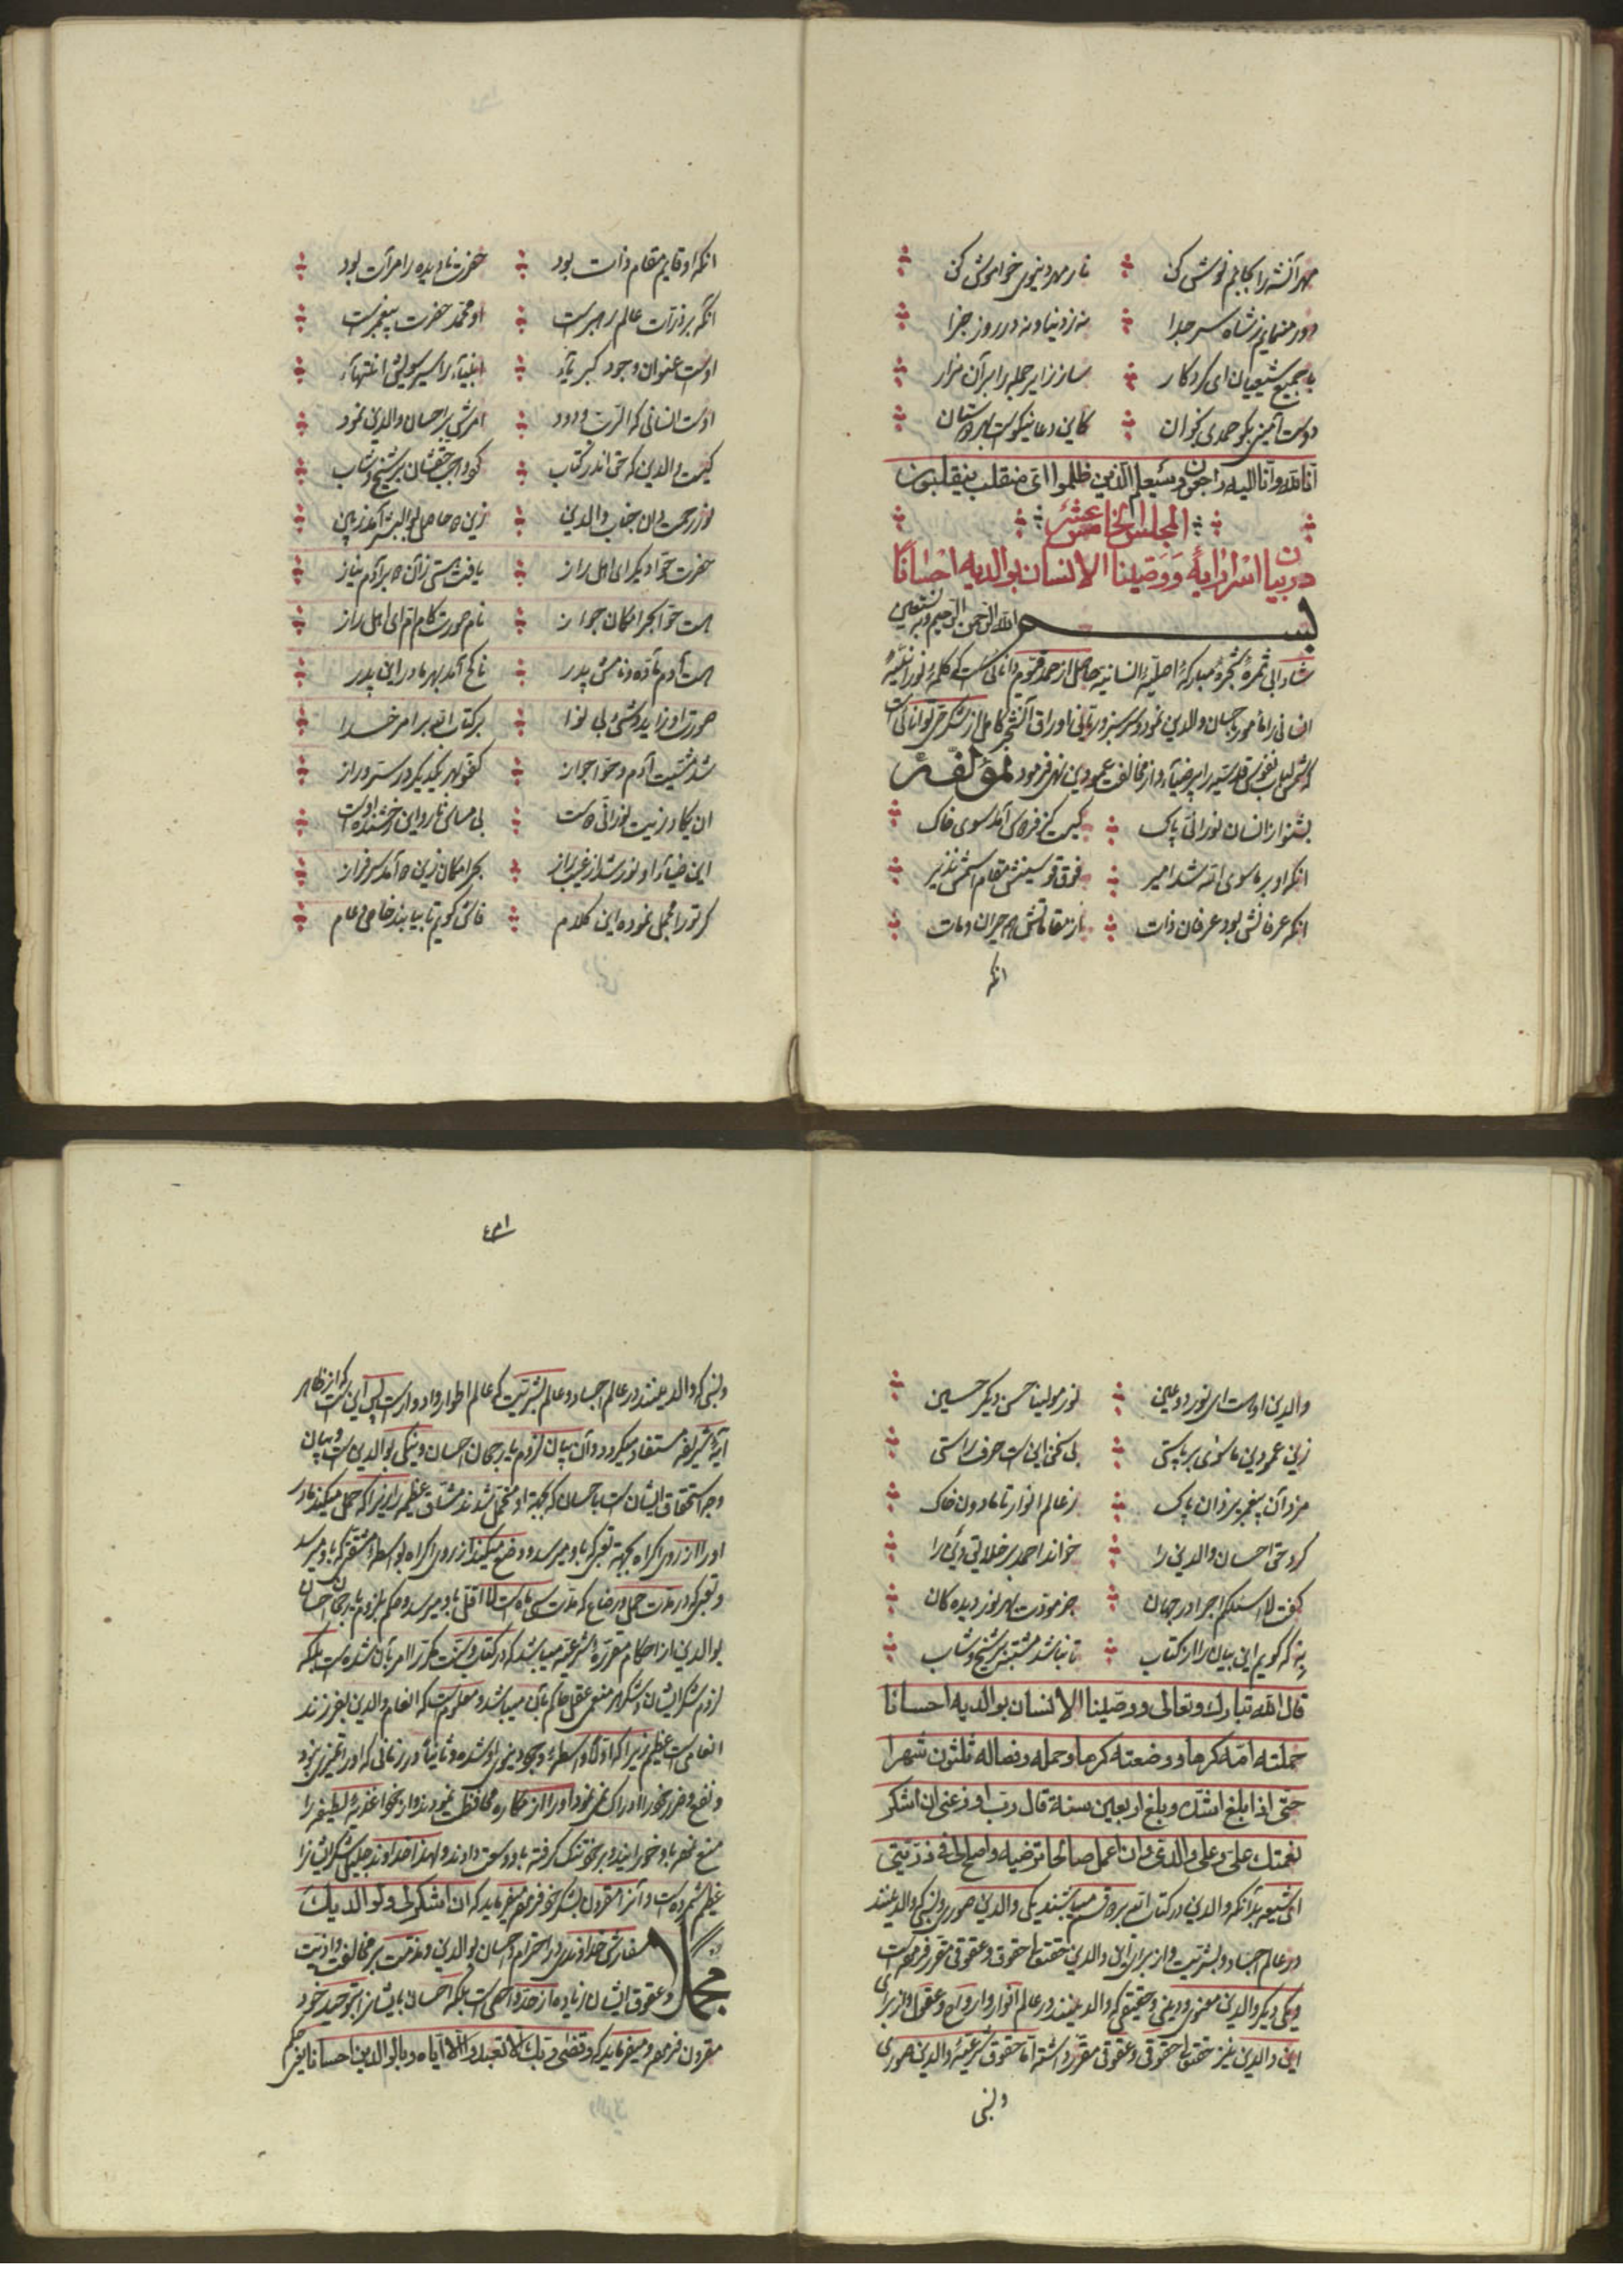 مهر آنشه را بکامم نوش کن نار مهر دنیوی خواموش کن
دور منمایم ز شاه سر جدا نه ز دنیا و نه در روز جزا
با جمیع شیعیان ای کردکار ساز زایر جمله را بر آن مزار
دوست آمین بکو حمدی بخوان کاین دعا نیکوست بهر دوستان
انا لله وانا الیه راجعون وسیعلم الذین ظلموا ای منقلب ینقلبون
المجلس الخامس عشر
در بیان اسرار آیه ووصینا الانسان بوالدیه احسانا
بسم الله الرحمن الرحیم وبه نستعین
شادابی ثمره شجره مبارکه اصلیه انسانیه حاصل از حمد قیوم دانائی است که کلمه نورانیه
انسانی را مامور باحسان والدین نمود وسرسبز وریانی اوراق آنشجر کامل از شکر حی توانائی است
که شمس نفوس قدسیه را پرضیاء و از مخالفت عمودین نهی فرمود لمؤلفه
بشنو از انسان نورانی پاک کیست کز فردوس آمد سوی خاک
انکه او بر ماسوی الله شد امیر فوق قوسینش مقام است بی نذیر
انکه عرفانش بود عرفان ذات از مقاماتش همه حیران ومات
انکه
انکه او قایم مقام ذات بود حضرت نادیده را مرآت بود
انکه بر ذرات عالم رهبر است او محمد حضرت پیغمبر است
اوست عنوان وجود کبریاء انبیاء را سیر سویش انتهاء
اوست انسانی که الرب ودود امرش بر احسان والدین نمود
کیست والدین که حق اندر کتاب کرد واجب حقشان بر شیخ وشاب
نور رحمت دان جناب والدین زین دو حاصل بوالبشر آمد زپین
حضرت حوا دیکر ای اهل راز یافت هستی زآن دو بر آدم نیاز
هست حوا بحر امکان جواز نام صورت کام ام ای اهل راز
هست آدم ماده ونامش پدر ناکح آمد بهر مادر این پدر
صورت او زاید وشیء بی نوا بر کتاب الله بر امر خدا
شد مشیت آدم وحوا جواز کفو بهر یکدیکر در ستر وراز
ان یکاد زیت نورانی اوست بی مساس نار واین رخشنده اوست
این ضیاء او نور شد از غیب باز بحر امکان زین دو آمد سرفراز
کر تو را مجمل نموده این کلام فاش کویم تا بیابند خاص وعام
والدین اوست ای نور دو عین نور مولینا حسن دیکر حسین
زین عمودین ماسوی بر پاستی بی سخن این است حرف راستی
مزد آن پیغمبر یزدان پاک ز عالم انوار تا مادون خاک
کرد حق احسان والدین را خواند احمد بر خلایق دین را
کفت لا اسئلکم اجرا در جهان جز مودت بهر نور دیده کان
به که کویم این بیان را از کتاب تا نباشد مشتبه بر شیخ وشاب
قال الله تبارک وتعالی ووصینا الانسان بوالدیه احسانا
حملته امه کرها ووضعته کرها وحمله وفصاله ثلثون شهرا
حتی اذا بلغ اشده وبلغ اربعین سنة قال رب اوزعنی ان اشکر
نعمتک علی وعلی والدی وان اعمل صالحا ترضیه واصلح لی فی ذریتی
ای شیعه بدانکه والدین در کتاب الله بر دو قسم میباشند یکی والدین صوری ونسبی که والدیتند
در عالم اجساد وبشریت واز برای این والدین حقتعالی حقوق وعقوقی مقرر فرموده است
ویکی دیکر والدین معنوی ودینی وحقیقی که والدینند در عالم انوار وارواح وعقول واز برای
این والدین نیز حقتعالی حقوقی وعقوقی مقرر داشته اما حقوق شرعیه والدین صوری
ونسبی
۱۳۶
ونسبی که والدینند در عالم اجساد وعالم بشریت که عالم اطوار وادوار است پس این است که از ظاهر
آیه شریفه مستفاد میکردد وآن بیان لزوم یا رجحان احسان ونیکی بوالدین است وبیان
وجه استحقاق ایشان است باحسان که بجهة او متحمل شدند مشقات عظیمه را زیرا که حمل میکند مادر
او را از روی اکراه بجهة تعبی که باو میرسد ووضع میکند از روی اکراه بواسطه مشقتی که باو میرسد
وتعبی که در مدت حمل ورضاع که مدت سی ماه است لااقل باو میرسد وحکم بلزوم یا رجحان احسان
بوالدین از احکام مقرره شرعیه میباشد که در کتاب وسنت مکرر امر بآن شده است بلکه
لزوم شکر ایشان وشکر هر منعمی عقل حاکم بآن میباشد ومعلوم است که انعام والدین بفرزند
انعامی است عظیم زیرا که اولا واسطه وجود دنیوی او شده وثانیا در زمانی که او را تمیزی نبود
ونفع وضرر خود را ادراک نمی نمود او را از مکاره محافظت نمودند واز خود اغذیه لطیفه را
منع نموده باو خورانیدند وبر خود تنک کرفته باو وسعت دادند ولهذا خداوند جلیل شکر ایشانرا
عظیم شمرده است وآنرا مقرون بشکر خود فرموده میفرماید که ان اشکر لی ولوالدیک
مجملا سفارش خداوندی در احترام واحسان بوالدین ومذمت بر مخالفت واذیت
وعقوق ایشان زیاده از حد واحصی است بلکه احسان بایشانرا بتوحید خود
مقرون فرموده ومیفرماید که وقضی ربک الا تعبدوا الا ایاه وبالوالدین احسانا یعنی حکم